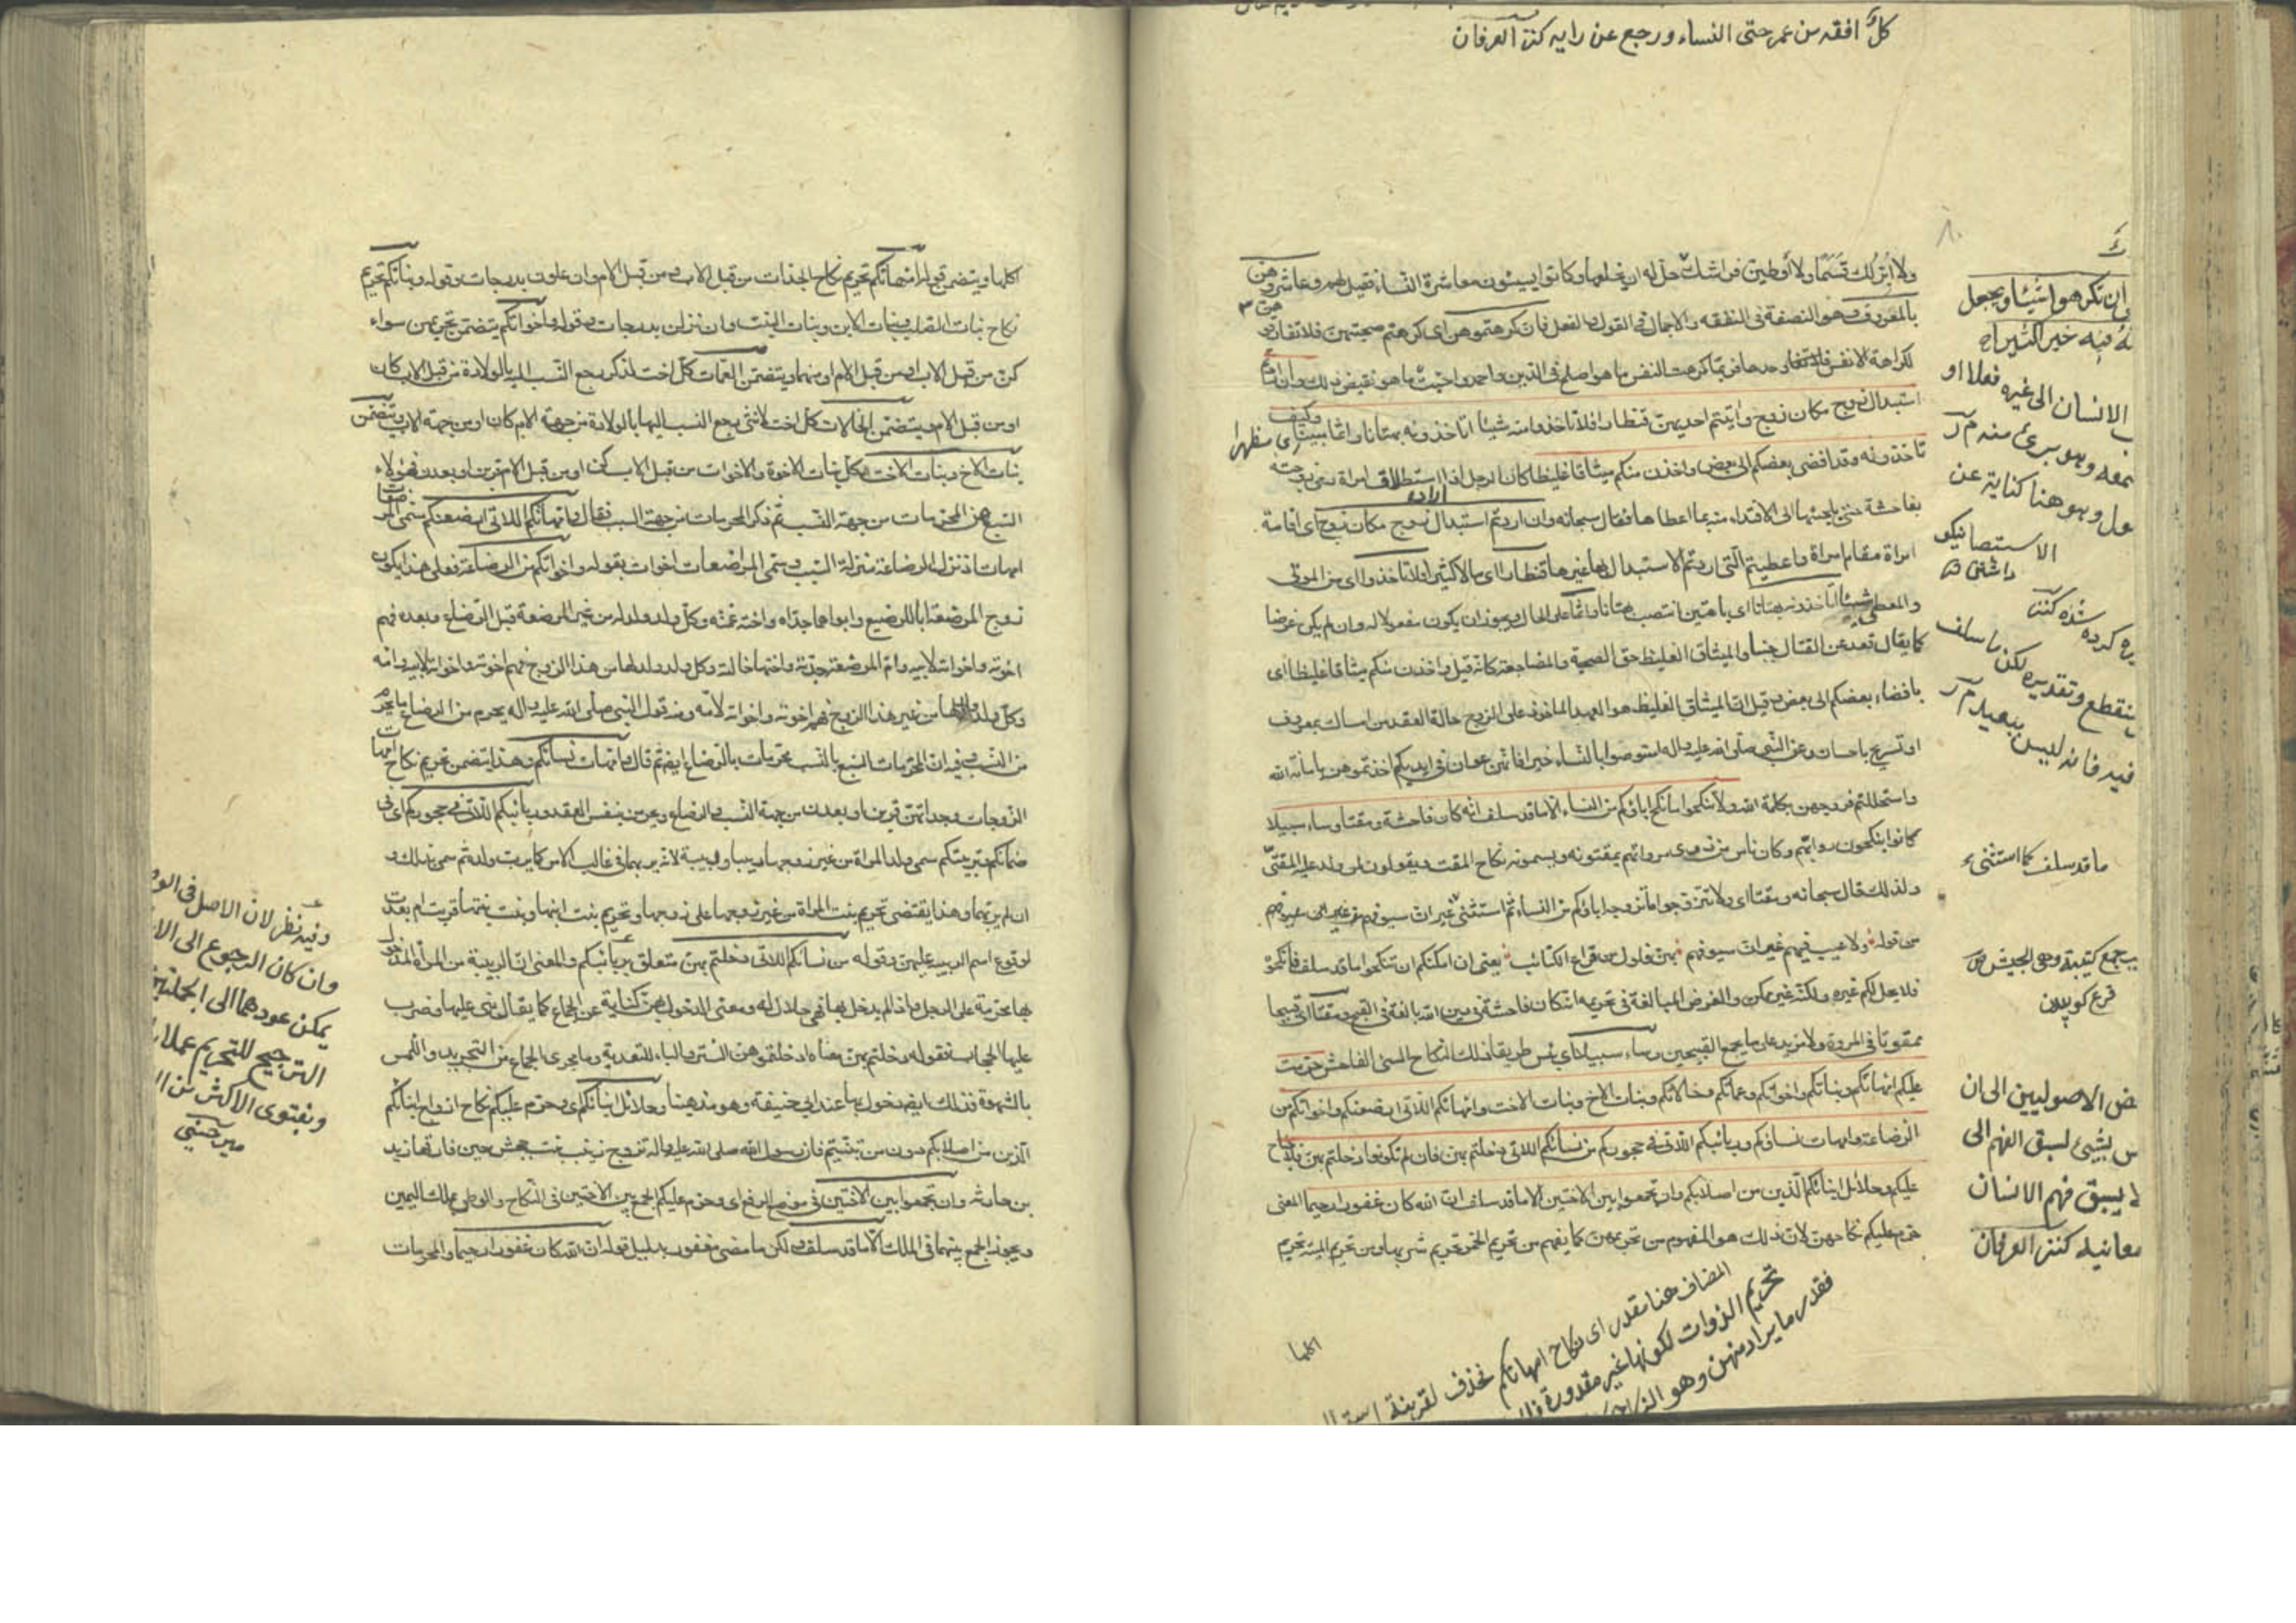 كل افقه من عمر حتى النساء ورجع عن رايه كنز العرفان
بالمعروف وهو النصفة فى النفقة والاجمال فى القول والفعل فان كرهتموهن اى كرهتم صحبتهن فلا تفارقوهن
لكراهة الانفس وحدها فربما كرهت النفس ما هو اصلح فى الدين واحمد واحبت ما هو نقيض ذلك وان اردتم
استبدال زوج مكان زوج واتيتم احديهن قنطارا فلا تاخذوا منه شيئا اتاخذونه بهتانا واثما مبينا وكيف
تاخذونه وقد افضى بعضكم الى بعض واخذن منكم ميثاقا غليظا كان الرجل اذا اراد
بفاحشة حتى يلجئها الى الافتداء منه بما اعطاها فقال سبحانه وان اردتم استبدال زوج مكان زوج اى اقامة
امراة مقام امراة واعطيتم التى اردتم الاستبدال بها غيرها قنطارا اى مالا كثيرا فلا تاخذوا اى من المؤتى
والمعطى شيئا اتاخذونه بهتانا اى باهتين انتصب بهتانا واثما على الحال ويجوز ان يكون مفعولا له وان لم يكن غرضا
كما يقال قعد عن القتال جبنا والميثاق الغليظ حق الصحبة والمضاجعة كانه قيل واخذن منكم ميثاقا غليظا اى
بافضاء بعضكم الى بعض وقيل ان الميثاق الغليظ هو العهد الماخوذ على الزوج حالة العقد من امساك بمعروف
او تسريح باحسان وعن النبى صلى الله عليه واله استوصوا بالنساء خيرا فانهن عوان فى ايديكم اخذتموهن بامانة الله
واستحللتم فروجهن بكلمة الله ولا تنكحوا ما نكح اباؤكم من النساء الا ما قد سلف انه كان فاحشة ومقتا وساء سبيلا
كانوا ينكحون روابهم وكان ناس من ذوى مرواتهم يمقتونه ويسمونه نكاح المقت ويقولون لمن ولد عليه المقتى
ولذلك قال سبحانه ومقتا اى ولا تتزوجوا ما تزوج اباؤكم من النساء ثم استثنى
من قوله ولا عيب فيهم غير ان سيوفهم بهن فلول من قراع الكتائب يعنى ان امكنكم ان تنكحوا ما قد سلف فانكحوا
فلا يحل لكم غيره ولكنه غير ممكن والغرض المبالغة فى تحريمه انه كان فاحشة فى دين الله بالغة فى القبح ومقتا اى قبيحا
ممقوتا فى المروة ولا مزيد على ما يجمع القبيحين وساء سبيلا اى بئس طريقا ذلك النكاح المسمى الفاحش حرمت
عليكم امهاتكم وبناتكم واخواتكم وعماتكم وخالاتكم وبنات الاخ وبنات الاخت وامهاتكم اللاتى ارضعنكم واخواتكم من
الرضاعة وامهات نسائكم وربائبكم اللاتى فى حجوركم من نسائكم اللاتى دخلتم بهن فان لم تكونوا دخلتم بهن فلا جناح
عليكم وحلائل ابنائكم الذين من اصلابكم وان تجمعوا بين الاختين الا ما قد سلف ان الله كان غفورا رحيما المعنى
حرم عليكم نكاحهن لان ذلك هو المفهوم من تحريمهن كما يفهم من تحريم الخمر تحريم شربها ومن تحريم الميتة تحريم
اكلها
ان تكرهوا شيئا ويجعل
فيه خيرا كثيرا
الانسان الى غيره فعلا او
وهو برئ منه
وهو هنا كناية عن
ما قد سلف كما استثنى
جمع كتيبة وهى الجيش
قرع كوبيدن
الاصوليين الى ان
بشئ لسبق الفهم الى
يسبق فهم الانسان
معانيه كنز العرفان
المضاف هنا مقدر اى نكاح امهاتكم فحذف لقرينة
تحريم الذوات لكونها غير مقدورة
فقدر ما يراد منهن وهو
اكلها ويتضمن قوله امهاتكم تحريم نكاح الجدات من قبل الاب ومن قبل الام وان علون بدرجات وقوله وبناتكم تحريم
نكاح بنات الصلب وبنات الابن وبنات البنت وان نزلن بدرجات وقوله واخواتكم يتضمن تحريمهن سواء
كن من قبل الاب او من قبل الام او منهما ويتضمن العمات كل اخت لذكر رجع النسب اليه بالولادة من قبل الاب كان
او من قبل الام ويتضمن الخالات كل اخت لانثى رجع النسب اليها بالولادة من جهة الام كان او من جهة الاب ويتضمن
بنات الاخ وبنات الاخت كل بنات الاخوة والاخوات من قبل الاب كن او من قبل الام قربن او بعدن فهؤلاء
السبع هن المحرمات من جهة النسب ثم ذكر المحرمات من جهة السبب فقال وامهاتكم اللاتى ارضعنكم سمى المرضعات
امهات اذ نزل الرضاعة منزلة النسب وسمى المرضعات اخوات بقوله واخواتكم من الرضاعة فعلى هذا يكون
زوج المرضعة ابا للرضيع وابواهما جداه واخته عمته وكل ولد ولد له من غير المرضعة قبل الرضاع وبعده فهم
اخوته واخواته لابيه وام المرضعة جدته واختها خالته وكل ولد ولد لها من هذا الزوج فهم اخوته واخواته لابيه وامه
وكل ولد لها من غير هذا الزوج فهم اخوته واخواته لامه ومنه قول النبى صلى الله عليه واله يحرم من الرضاع ما يحرم
من النسب وفيه ان المحرمات السبع بالنسب محرمات بالرضاع ايضا ثم قال وامهات نسائكم وهذا يتضمن تحريم نكاح امهات
الزوجات وجداتهن قربن او بعدن من جهة النسب والرضاع ويحرمن بنفس العقد وربائبكم اللاتى فى حجوركم اى فى
ضمانكم وتربيتكم سمى ولد المراة من غير زوجها ربيبا وربيبة لانه يربهما فى غالب الامر كما يرب ولده ثم سمى بذلك و
ان لم يربهما وهذا يقتضى تحريم بنت المراة من غير زوجها على زوجها وتحريم بنت ابنها وبنت بنتها قربت ام بعدت
لوقوع اسم الربيبة عليهن وقوله من نسائكم اللاتى دخلتم بهن متعلق بربائبكم والمعنى ان الربيبة من المراة المدخول
بها محرمة على الرجل واذا لم يدخل بها فهى حلال له ومعنى الدخول بهن كناية عن الجماع كما يقال بنى عليها وضرب
عليها الحجاب فقوله دخلتم بهن معناه ادخلتموهن الستر والباء للتعدية وما يجرى الجماع من التجريد واللمس
بالشهوة فذلك ايضا دخول بها عند ابى حنيفة وهو مذهبنا وحلائل ابنائكم اى وحرم عليكم نكاح ازواج ابنائكم
الذين من اصلابكم دون من تبنيتم فان رسول الله صلى الله عليه واله تزوج زينب بنت جحش حين فارقها زيد
بن حارثه وان تجمعوا بين الاختين فى موضع الرفع اى وحرم عليكم الجمع بين الاختين فى النكاح والوطى بملك اليمين
ويجوز الجمع بينهما فى الملك الا ما قد سلف ولكن ما مضى مغفور بدليل قوله ان الله كان غفورا رحيما والمحرمات
وفيه نظر لان الاصل فى
وان كان الرجوع الى
يمكن عودهما الى الجملتين
الترجيح للتحريم عملا
وبفتوى الاكثر من